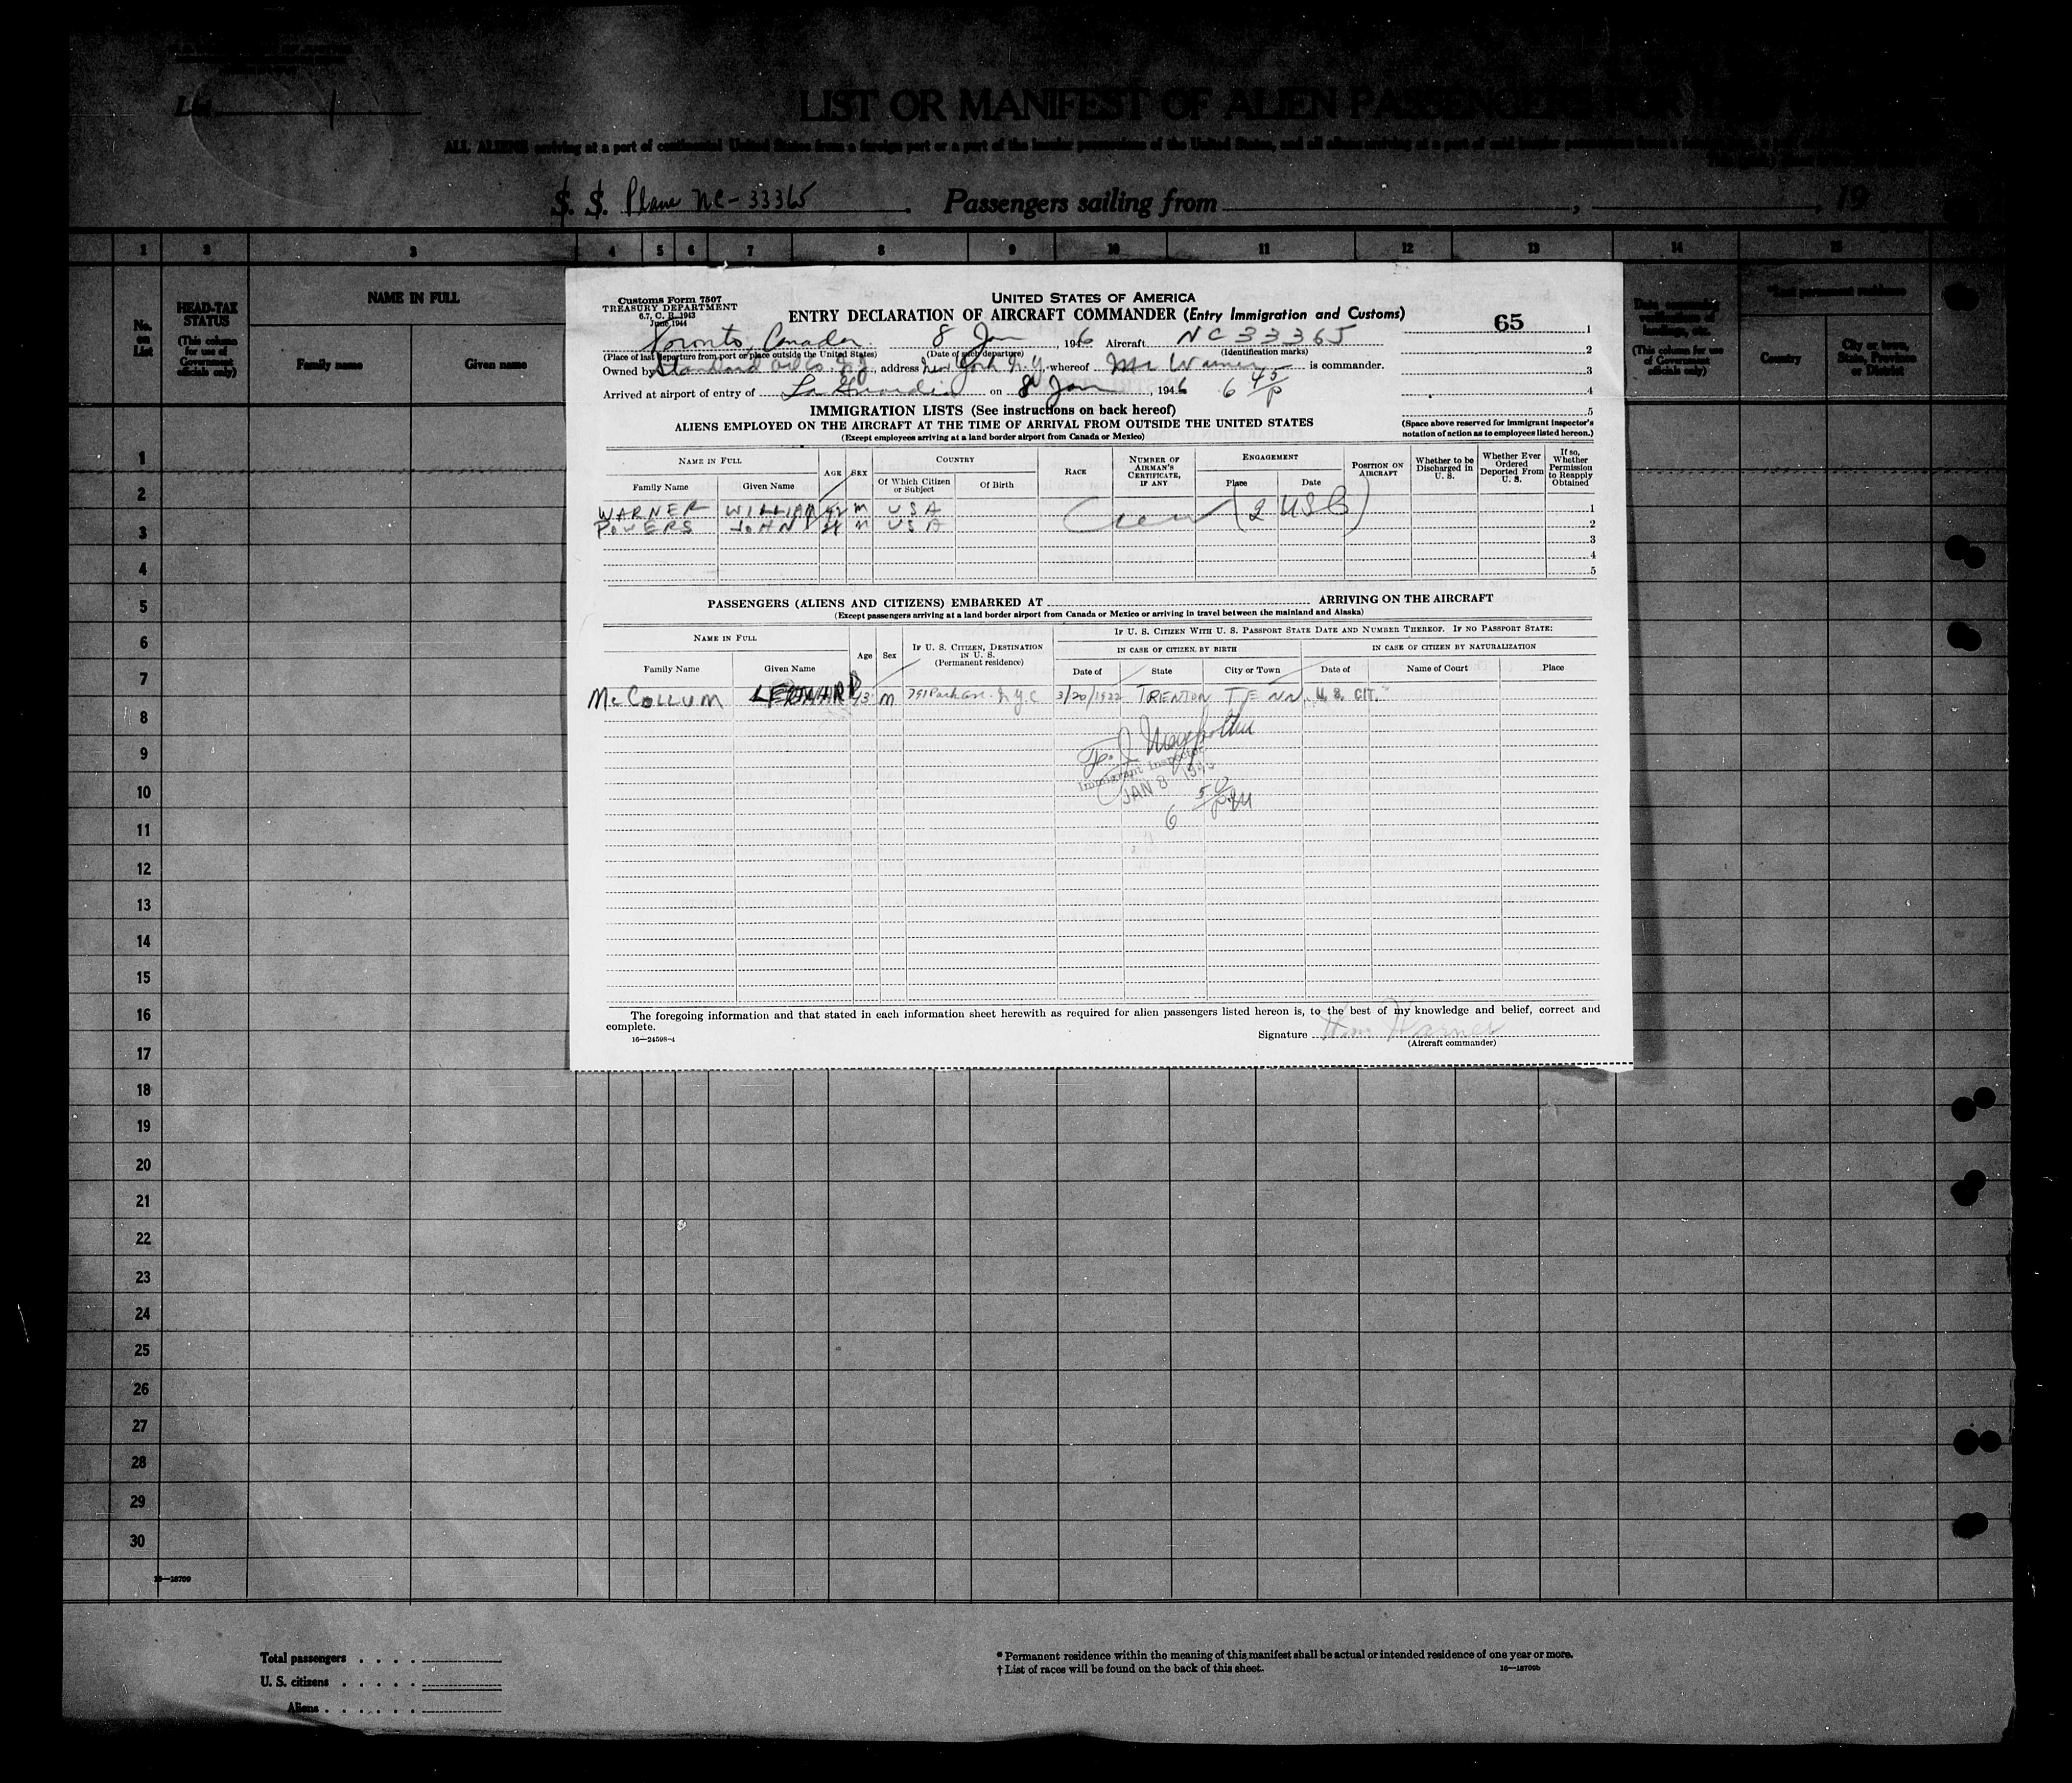 List 1
LIST OR MANIFEST OF ALIEN PASSENGERS FOR THE
ALL ALIENS arriving at a port of continental United States from a foreign port or a port of the insular possessions of the United States, and all aliens arriving at a port of said insular possessions from a foreign port, a port of
S. S. Plane NC-33365 . Passengers sailing from , , 19
1 2 3 4 5 6 7 8 9 10 11 12 13 14 15
No. on List
HEAD-TAX STATUS
(This column for use of Government officials only)
NAME IN FULL
Family name Given name
(This column for use of Government officials only)
*Last permanent residence
Country
City or town, State, Province or District
Customs Form 7507
TREASURY DEPARTMENT
6.7, C. R. 1943
June 1944
UNITED STATES OF AMERICA
ENTRY DECLARATION OF AIRCRAFT COMMANDER (Entry Immigration and Customs)
65 1
Toronto, Canada 8 Jan , 1946 Aircraft NC 33365
(Place of last departure from port or place outside the United States) (Date of such departure) (Identification marks) 2
Owned by Standard Oil Co N.J., address New York N.Y., whereof Mr Warner is commander. 3
Arrived at airport of entry of La Guardia on 8 Jan , 1946 6 45/P 4
IMMIGRATION LISTS (See instructions on back hereof) 5
ALIENS EMPLOYED ON THE AIRCRAFT AT THE TIME OF ARRIVAL FROM OUTSIDE THE UNITED STATES
(Except employees arriving at a land border airport from Canada or Mexico)
(Space above reserved for immigrant inspector's notation of action as to employees listed hereon.)
NAME IN FULL
Family Name Given Name
AGE SEX
COUNTRY
Of Which Citizen or Subject Of Birth
RACE
NUMBER OF AIRMAN'S CERTIFICATE, IF ANY
ENGAGEMENT
Place Date
POSITION ON AIRCRAFT
Whether to be Discharged in U. S.
Whether Ever Ordered Deported From U. S.
If so, Whether Permission to Reapply Obtained
WARNER WILLIAM 42 M USA Crew (2 USC) 1
POWERS JOHN M USA 2
3
4
5
PASSENGERS (ALIENS AND CITIZENS) EMBARKED AT ARRIVING ON THE AIRCRAFT
(Except passengers arriving at a land border airport from Canada or Mexico or arriving in travel between the mainland and Alaska)
NAME IN FULL
Family Name Given Name
Age Sex
IF U. S. CITIZEN, DESTINATION IN U. S.
(Permanent residence)
IF U. S. CITIZEN WITH U. S. PASSPORT STATE DATE AND NUMBER THEREOF. IF NO PASSPORT STATE:
IN CASE OF CITIZEN, BY BIRTH IN CASE OF CITIZEN BY NATURALIZATION
Date of State City or Town Date of Name of Court Place
McCOLLUM LEONARD 43 M 791 Park Ave. N.Y.C 3/20/1922 TRENTON TENN. U. S. CIT.
Immigrant Inspector
JAN 8
6 50/P.M
The foregoing information and that stated in each information sheet herewith as required for alien passengers listed hereon is, to the best of my knowledge and belief, correct and
complete.
Signature Wm Warner
16—24598-4 (Aircraft commander)
1
2
3
4
5
6
7
8
9
10
11
12
13
14
15
16
17
18
19
20
21
22
23
24
25
26
27
28
29
30
16—18709
Total passengers . . . .
U. S. citizens . . . . .
Aliens . . . . . .
* Permanent residence within the meaning of this manifest shall be actual or intended residence of one year or more.
† List of races will be found on the back of this sheet. 16—18709b